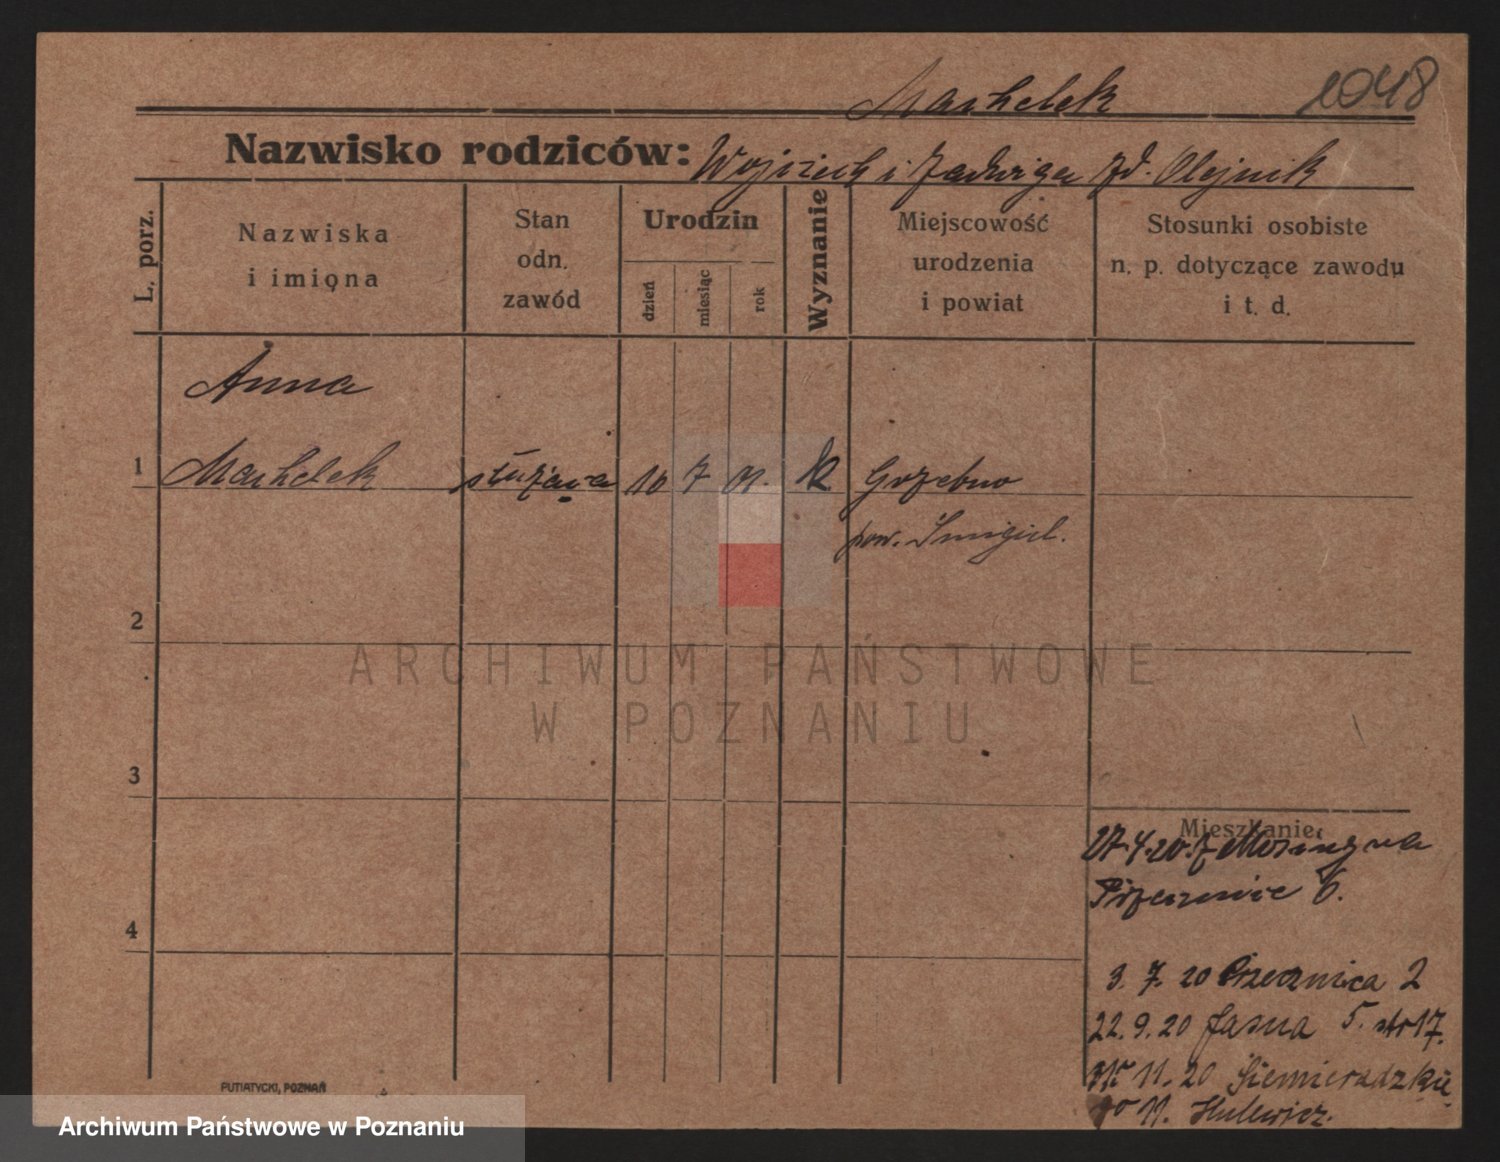 Marhelek 1048
Nazwisko rodziców: Wojciech i Jadwiga zd. Olejnik
L. porz.
Nazwiska
i imiona
Stan
odn.
zawód
Urodzin
dzień
miesiąc
rok
Wyznanie
Miejscowość
urodzenia
i powiat
Stosunki osobiste
n. p. dotyczące zawodu
i t. d.
Anna
1 Marhelek służąca 10 7 01. k. Grzebno
pow. Śmigiel.
2
3
4
ARCHIWUM PAŃSTWOWE
W POZNANIU
Mieszkanie:
27.4.20. z
Przecznic 6.
3. 7. 20 Przecznica 2
22. 9. 20 Jasna 5. str 17.
11. 20 Siemieradzkie
11. Hulewicz.
PUTIATYCKI, POZNAŃ
Archiwum Państwowe w Poznaniu